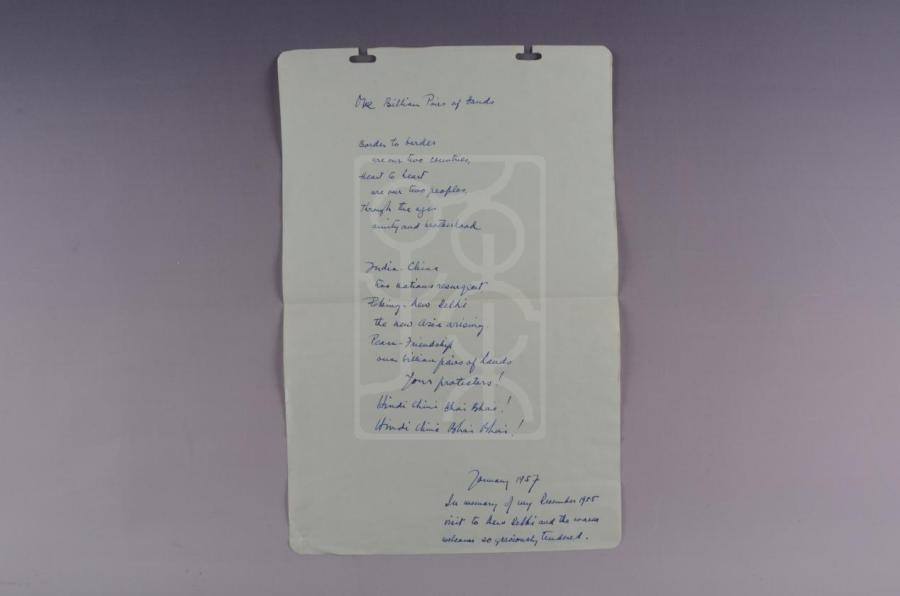 One Billion Pairs of Hands
Border to border
are our two countries,
Heart to heart
are our two peoples,
Through the ages
amity and brotherhood.
India-China
two nations resurgent
Peking-New Delhi
the new Asia arising.
Peace-Friendship
one billion pairs of hands
Your protectors!
Hindi Chini Bhai Bhai!
Hindi Chini Bhai Bhai!
January 1957
In memory of my December 1955
visit to New Delhi and the warm
welcome so graciously tendered.